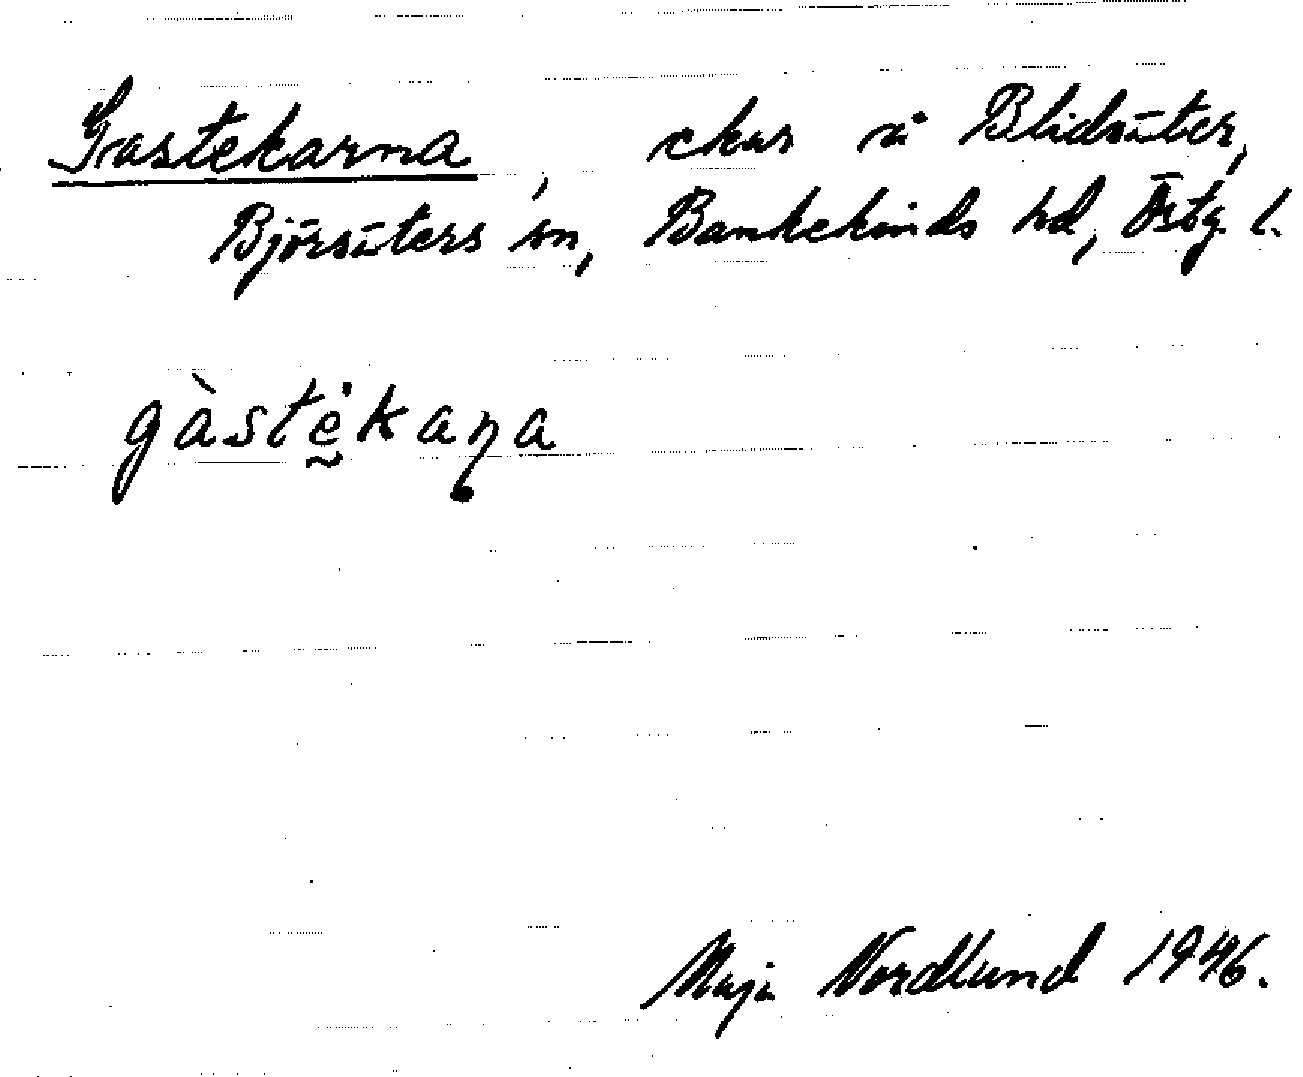 Gastekarna, ekar å Blidsäter,
Björsäters sn, Bankekinds hd, Östg. l.
gàstėkaɳa
Maja Nordlund 1946.